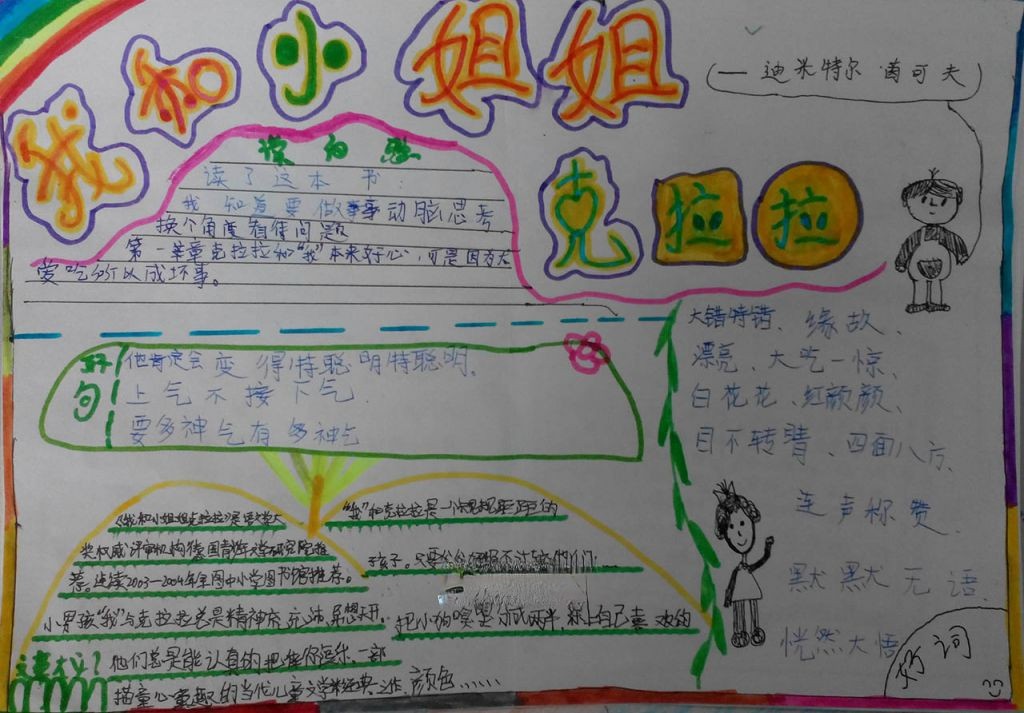 我和小姐姐
克拉拉
(— 迪米特尔 茵可夫)
读后感
读了这本书:
我知道要做事事动脑思考
换个角度看待问题
第一篇章克拉拉和“我”本来好心,可是因为太
爱吃所以成坏事。
好句
他肯定会变得特聪明特聪明.
上气不接下气.
要多神气有多神气
大错特错、缘故、
漂亮、大吃一惊、
白花花、红颜颜、
目不转睛、四面八方、
连声称赞
默默无语
恍然大悟
好词
《我和小姐姐克拉拉》是德文学大
奖权威评审机构德国青少年文学研究院推
荐。连续2003-2004年全国中小学图书馆推荐。
小男孩“我”与克拉拉总是精神充沛,异想天开.
他们总是能认真的把你逗乐.一部
描童心童趣的当代儿童文学经典之作.
主要大义?
“我”和克拉拉是一个规规矩矩的
孩子。只要
把小狗 成两半,涂上自己喜欢的
颜色……